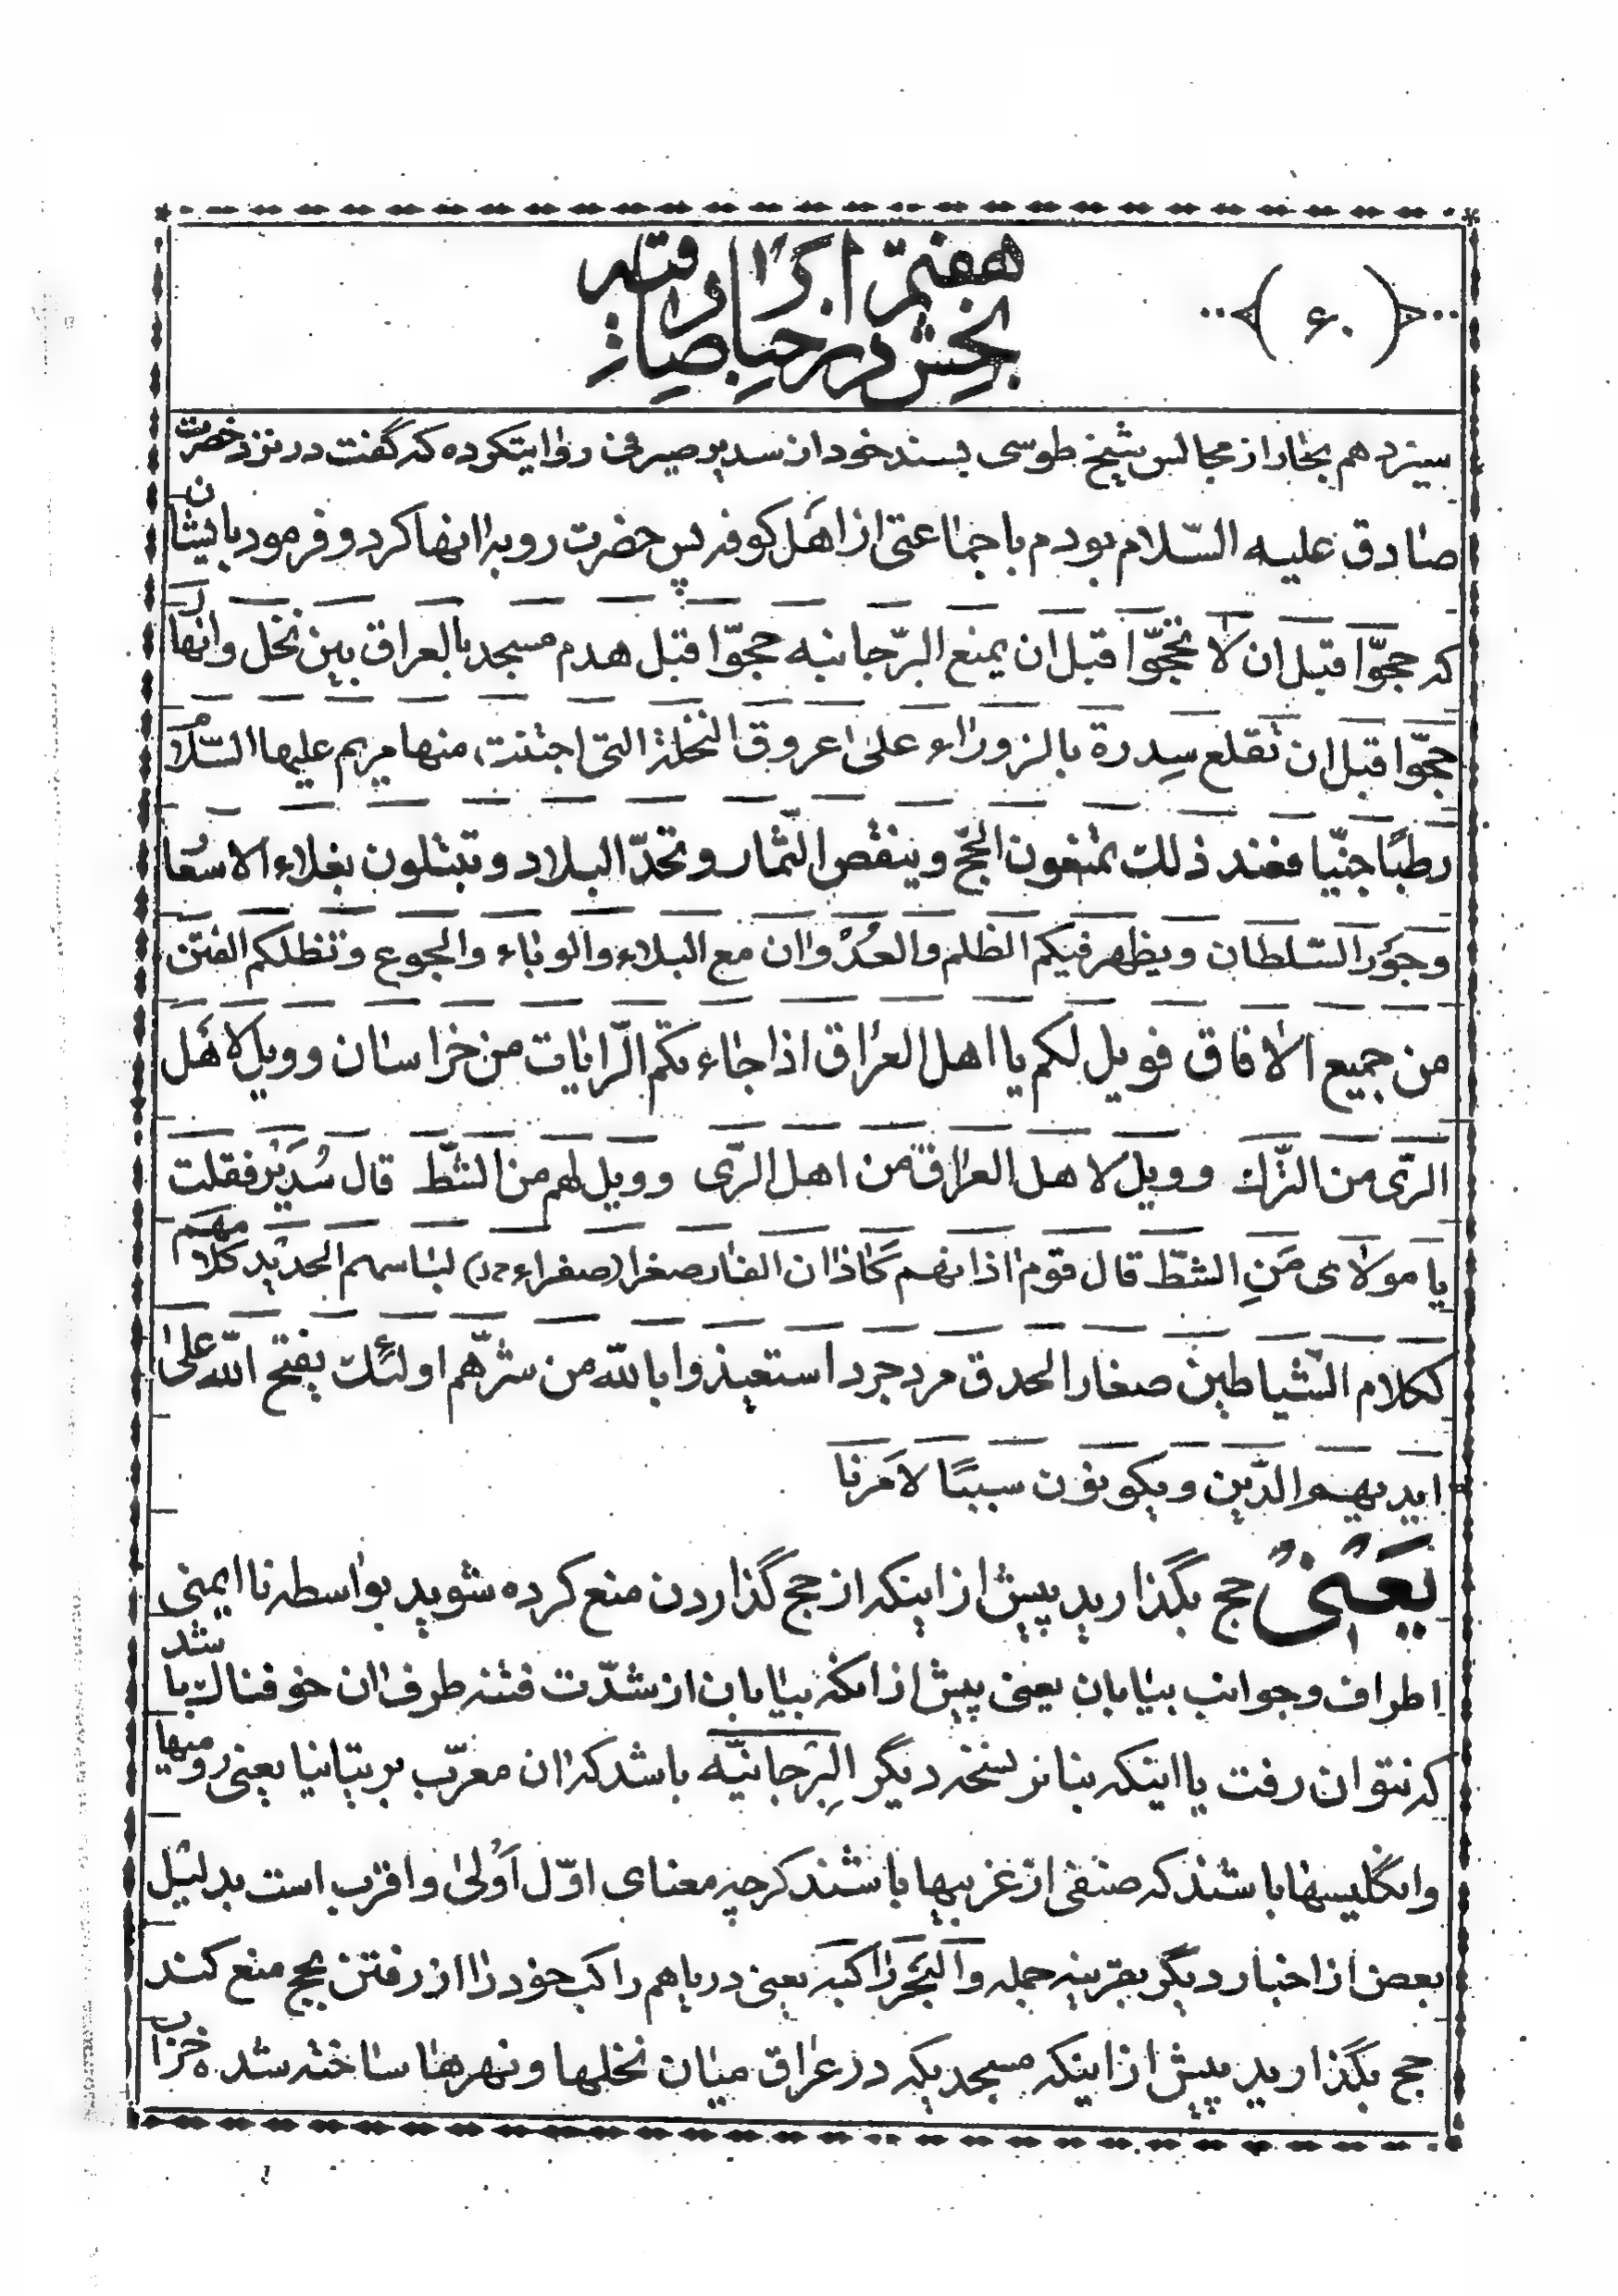 (۶۰)
بخش هفتم در اخبار صادقیه
سیزدهم بخار از مجالس شیخ طوسی بسند خود از سدیر صیرفی روایتکرده که گفت در نزد حضرت
صادق علیه السّلام بودم با جماعتی از اهل کوفه پس حضرت رو به انها کرد و فرمود بایشان
که حجّوا قبل ان لا تحجّوا قبل ان یمنع البرّ جانبه حجّوا قبل هدم مسجد بالعراق بین نخل وانهار
حجّوا قبل ان تقلع سِدرة بالزوراء علی اعروق النخلة التی اجتنت منها مریم علیها السّلام
رطبًا جنیّا فعند ذلک تمنعون الحجّ وینقص الثّمار وتحدّ البلاد وتبتلون بغلاء الاسعا
وجَور السّلطان ویظهر فیکم الظلم والعُدْوان مع البلاء والوباء والجوع وتظلکم الفتن
من جمیع الافاق فویل لکم یا اهل العراق اذا جاءتکم الرّایات من خراسان وویل لاهل
الرّی من التّرک وویل لاهل العراق من اهل الرّی وویل لهم من الشّط قال سُدَیْر فقلت
یا مولای مَنِ الشطّ قال قوم اذانهم کَاذان الفار صغرا (صفراء خ د) لباسهم الحدید کلامهم
ککلام الشّیاطین صغار الحدق مرد جرد استعیذوا بالله من شرّهم اولئک یفتح اللّه علی
ایدیهم الدّین ویکونون سببًا لاَمرنا
یَعْنی حج بگذارید پیش از اینکه از حج گذاردن منع کرده شوید بواسطه نا ایمنی
اطراف وجوانب بیابان یعنی پیش از انکه بیابان از شدّت فتنه طرف ان خوفناک باشد
که نتوان رفت یا اینکه بنا بر نسخه دیگر البِرَجانیّه باشد که ان معرّب بریتانیا یعنی رومیها
وانگلیسها باشند که صنفی از غربیها باشند گرچه معنای اوّل اَولی واقرب است بدلیل
بعض از اخبار دیگر بقرینه جمله والبَحر راکبه یعنی دریا هم راکب خود را از رفتن بحج منع کند
حج بگذارید پیش از اینکه مسجدیکه در عراق میان نخلها ونهرها ساخته شده خراب